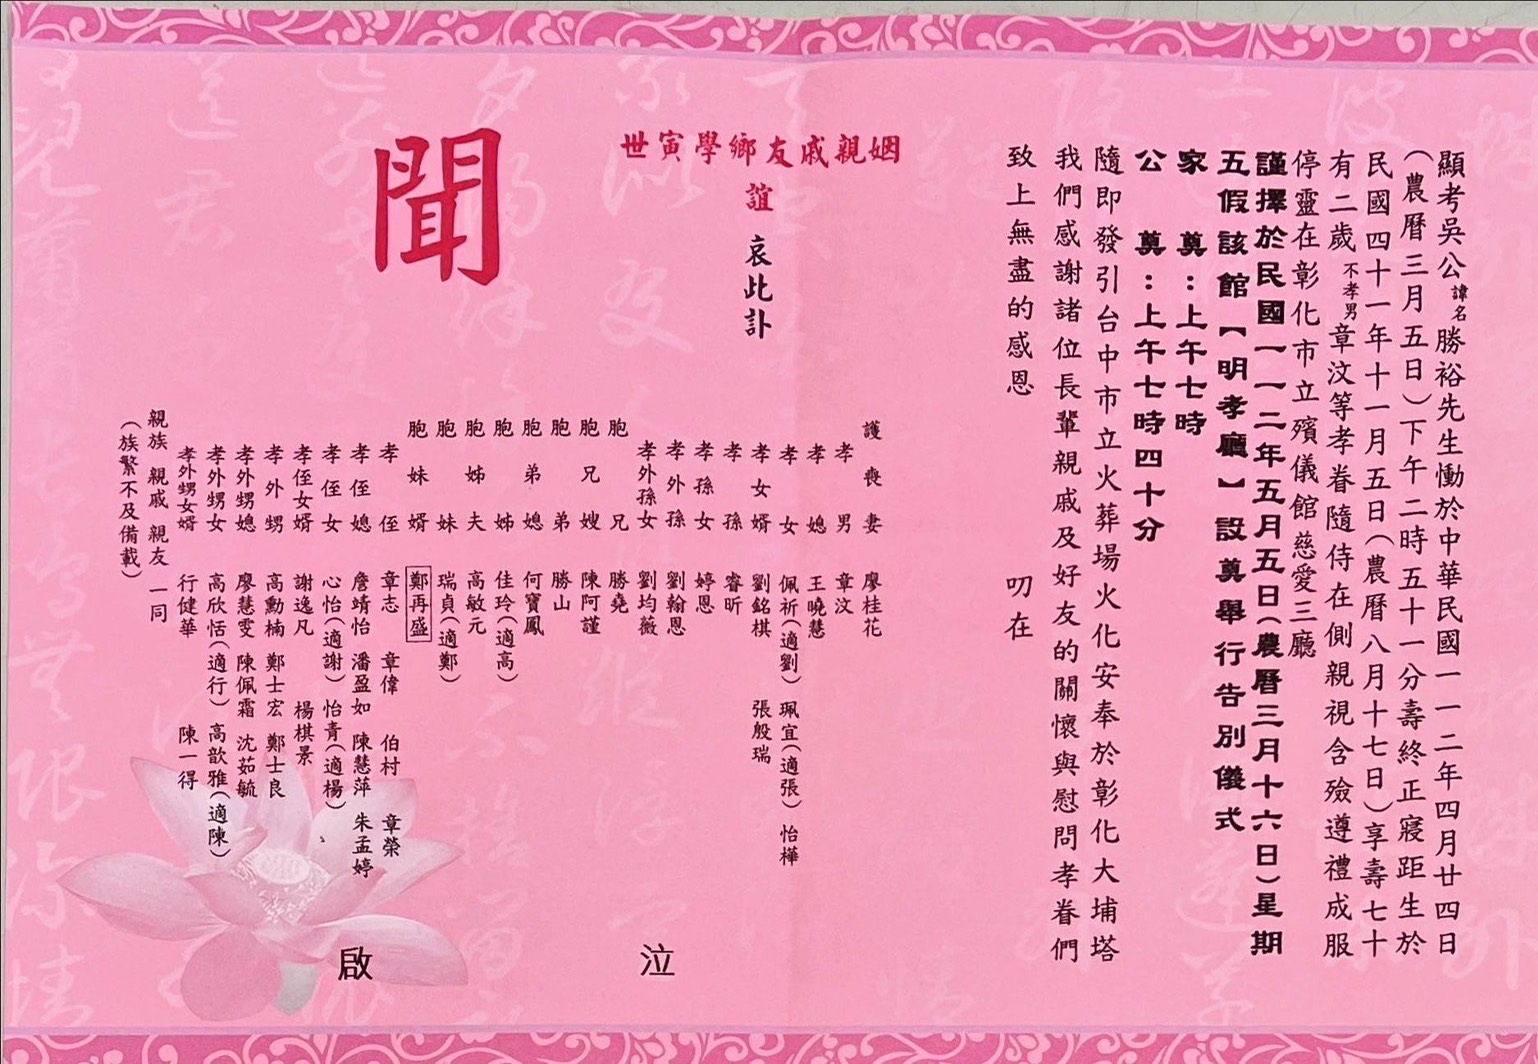 顯考吳公諱名勝裕先生慟於中華民國一一二年四月廿四日
(農曆三月五日)下午二時五十一分壽終正寢距生於
民國四十一年十一月五日(農曆八月十七日)享壽七十
有二歲不孝男章汶等孝眷隨侍在側親視含殮遵禮成服
停靈在彰化市立殯儀館慈愛三廳
謹擇於民國一一二年五月五日(農曆三月十六日)星期
五假該館【明孝廳】設奠舉行告別儀式
家 奠:上午七時
公 奠:上午七時四十分
隨即發引台中市立火葬場火化安奉於彰化大埔塔
我們感謝諸位長輩親戚及好友的關懷與慰問孝眷們
致上無盡的感恩
叨在
世寅學鄉友戚親姻
誼 哀此訃
聞
護喪妻 廖桂花
孝男 章汶
孝媳 王曉慧
孝女 佩祈(適劉) 珮宜(適張) 怡樺
孝女婿 劉銘棋 張殷瑞
孝孫 睿昕
孝孫女 婷恩
孝外孫 劉翰恩
孝外孫女 劉均薇
胞兄 勝堯
胞兄嫂 陳阿謹
胞弟 勝山
胞弟媳 何寶鳳
胞姊 佳玲(適高)
胞姊夫 高敏元
胞妹 瑞貞(適鄭)
胞妹婿 鄭再盛
孝侄 章志 章偉 伯村 章榮
孝侄媳 詹靖怡 潘盈如 陳慧萍 朱孟婷
孝侄女 心怡(適謝) 怡青(適楊)
孝侄女婿 謝逸凡 楊棋景
孝外甥 高勳楠 鄭士宏 鄭士良
孝外甥媳 廖慧雯 陳佩霜 沈茹毓
孝外甥女 高欣恬(適行) 高歆雅(適陳)
孝外甥女婿 行健華 陳一得
親族 親戚 親友 一同
(族繁不及備載)
泣 啟